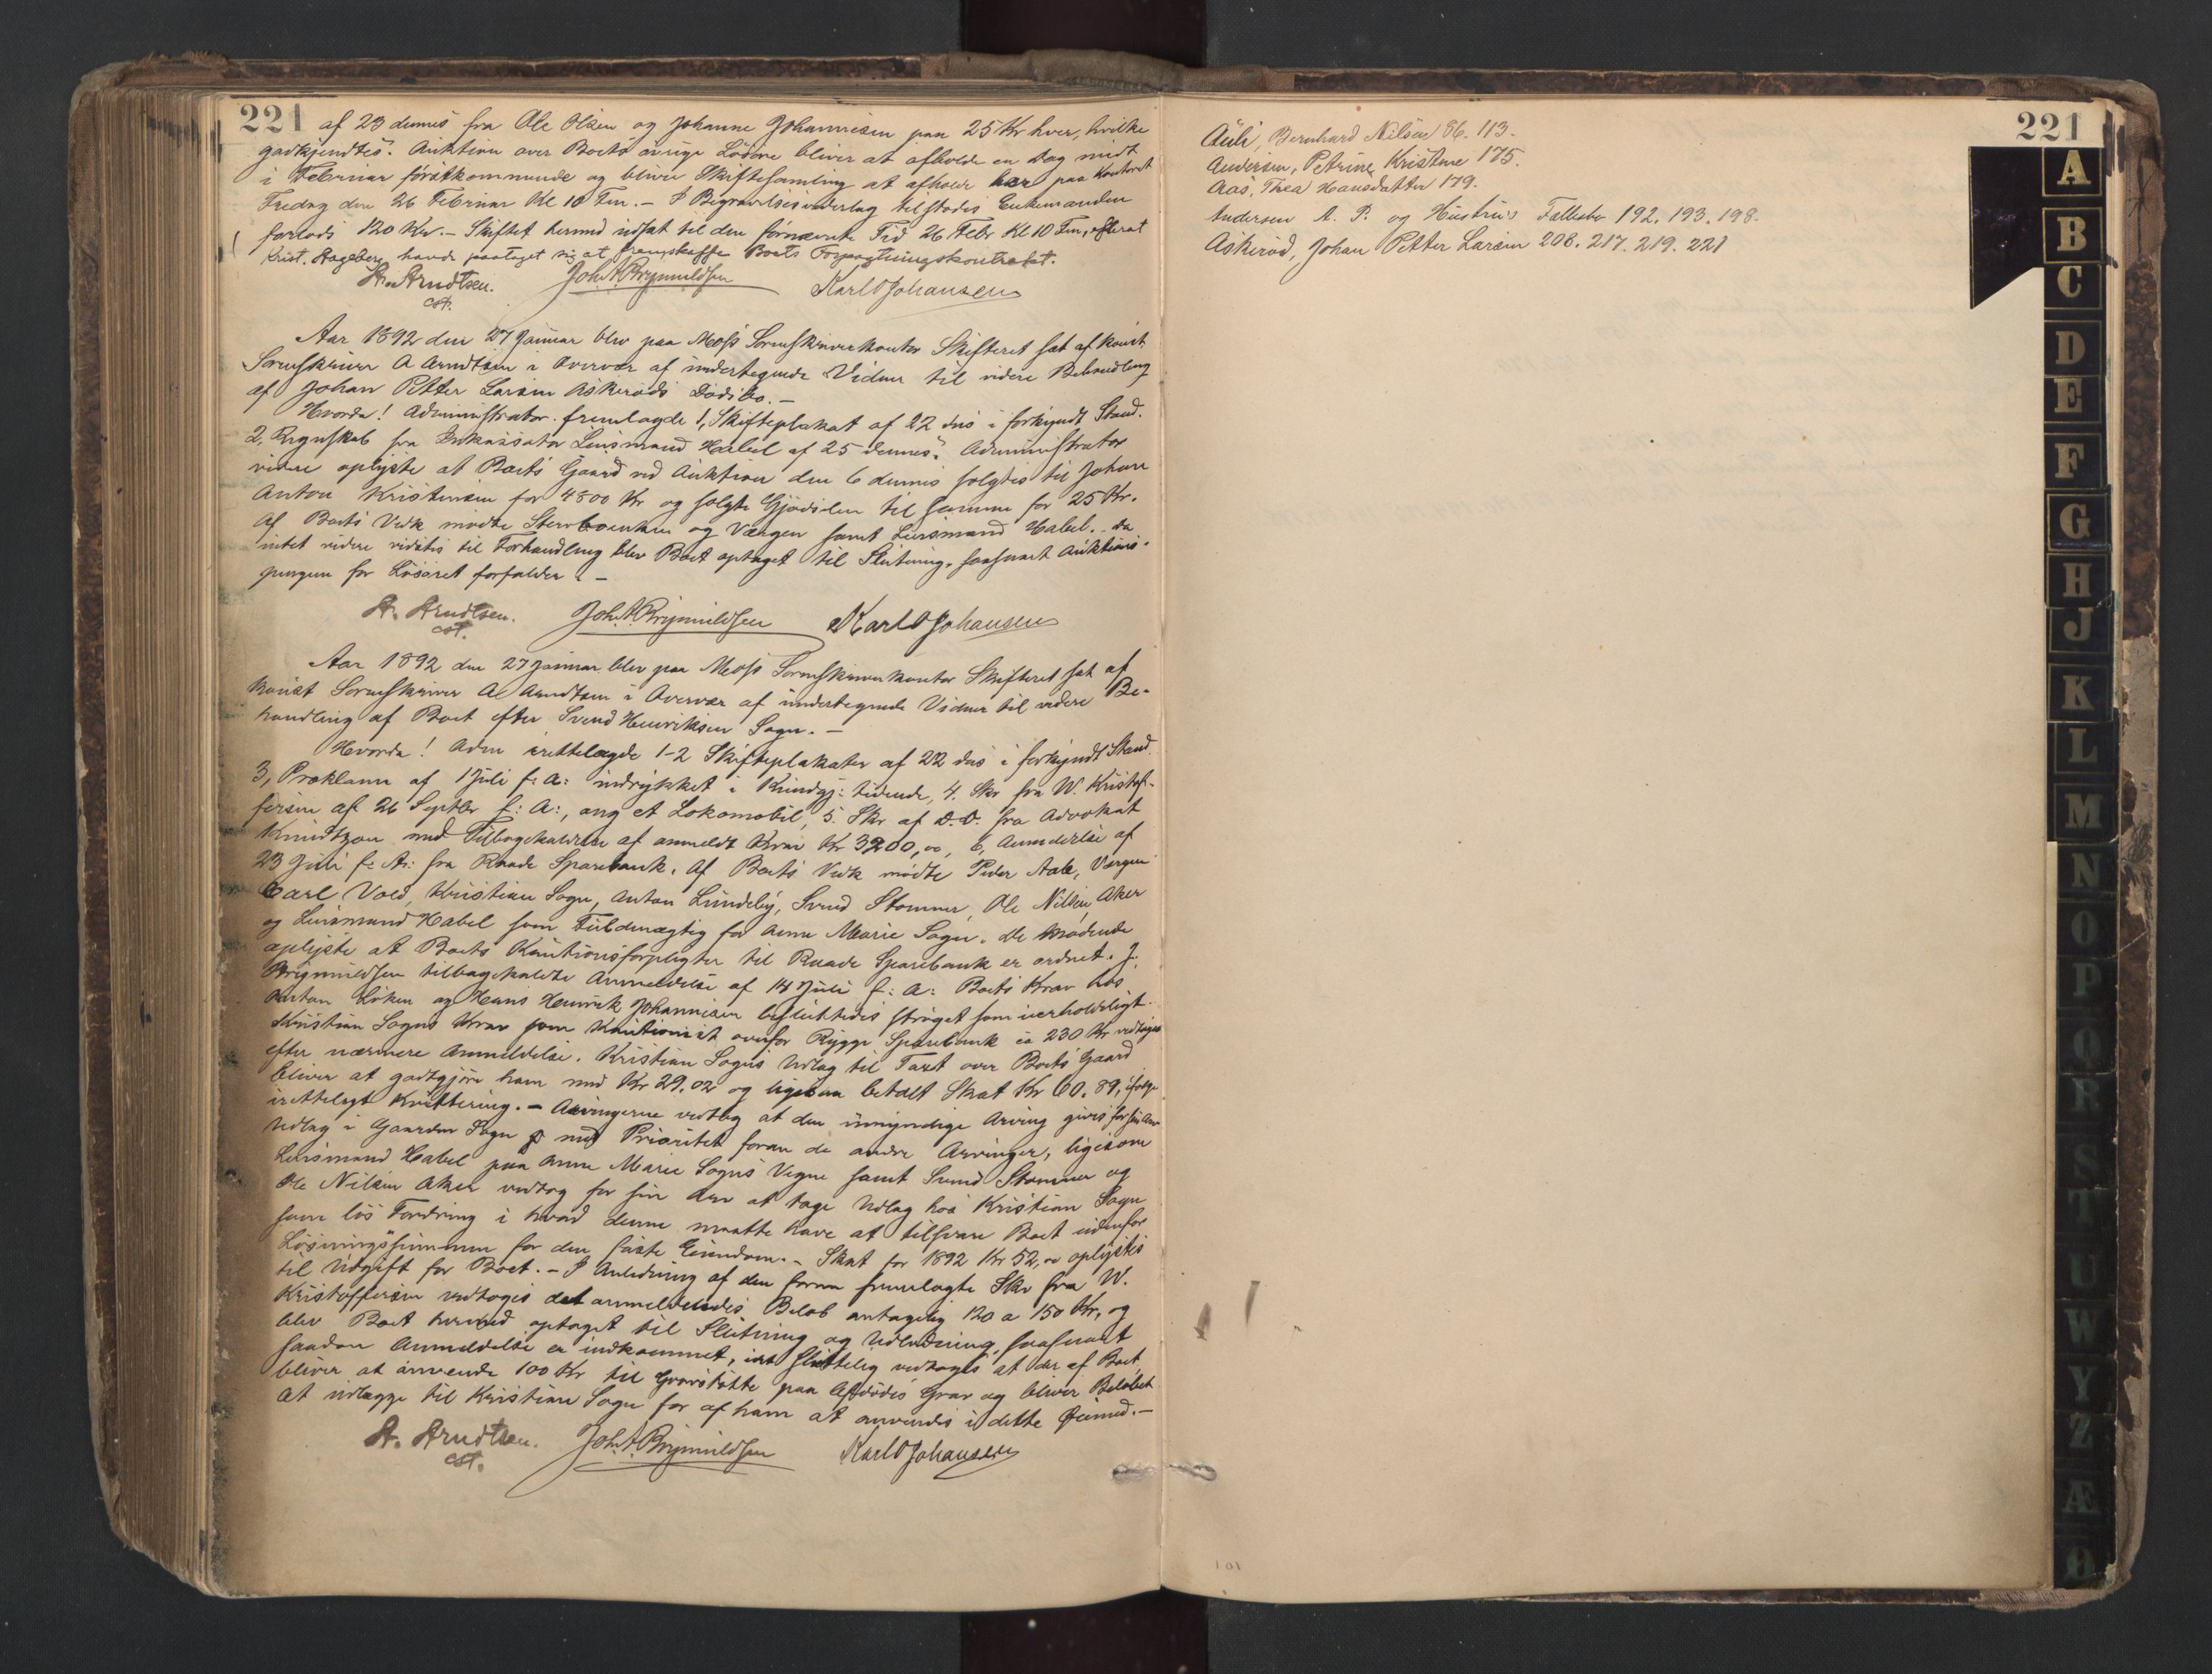 221 af 23 dennes fra Ole Olsen og Johanne Johannesen paa 25 Kr hver, hvilke
godkjendtes. Auktion over Boets øvrige Løsøre bliver at afholde en Dag midt
i Februar førstkommende og bliver Skiftesamling at afholde her paa Kontoret
Fredag den 26 Februar Kl 10 Fm. – I Begravelsesvederlag tilstodes Enkemanden
forlods 120 Kr. – Skiftet hermed udsat til den fornævnte Tid 26 Febr Kl 10 Fm, efterat
Krist. Hageberg havde paataget sig at fremskaffe Boets Forpagtningskontrakt.
A. Arndtsen. Joh. A. Brynildsen Karl O Johansen
cst.
Aar 1892 den 27 Januar blev paa Moss Sorenskriverkontor Skifteret sat af konst.
Sorenskriver A Arndtsen i Overvær af undertegnede Vidner til videre Behandling
af Johan Petter Larsen Askerøds Dødsbo. –
Hvorda! Administrator fremlagde 1, Skifteplakat af 22 ds i forkyndt Stand.
2, Regnskab fra Inkassator Lensmand Habel af 25 dennes. Administrator
videre oplyste at Boets Gaard ved Auktion den 6 dennes solgtes til Johan
Anton Kristensen for 4800 Kr og solgte Gjødselen til samme for 25 Kr.
Af Boets Vedk mødte Stervboenken og Værgen samt Lensmand Habel. Da
intet videre vidstes til Forhandling blev Boet optaget til Slutning, saasnart Auktions-
pengene for Løsøret forfalder. –
A. Arndtsen. Joh. A. Brynildsen Karl O Johansen
cst.
Aar 1892 den 27 Januar blev paa Moss Sorenskriverkontor Skifteret sat af
konst Sorenskriver A Arndtsen i Overvær af undertegnede Vidner til videre Be-
handling af Boet efter Svend Henriksen Sogn. –
Hvorda! Adm irettelagde 1-2 Skifteplakater af 22 ds i forkyndt Stand.
3, Proklama af 1 Juli f: A: indrykket i Kundgj: tidende, 4. Skr fra W. Kristof-
fersen af 26 Septbr f: A:, ang et Lokomobil, 5. Skr af D.D. fra Advokat
Knudtzon med Tilbagekaldelse af anmeldt Krav Kr 3200,00, 6, Anmeldelse af
23 Juli f: A: fra Raade Sparebank. Af Boets Vedk mødte Peder Aale, Værgen
Carl Vold, Kristian Sogn, Anton Lundeby, Svend Stomner, Ole Nilsen Aker
og Lensmand Habel som Fuldmægtig for Anne Marie Sogn. De mødende
oplyste at Boets Kautionsforpligter til Raade Sparebank er ordnet. J.
Brynildsen tilbagekaldte Anmeldelse af 14 Juli f: A: Boets Krav hos
Anton Løken og Hans Henrik Johannesen besluttedes strøget som uerholdeligt.
Kristian Sogns Krav som Kautionist overfor Rygge Sparebank ca 230 Kr vedtoges
efter nærmere Anmeldelse. Kristian Sogns Udlæg til Taxt over Boets Gaard
bliver at godtgjøre ham med Kr 29.02 og ligesaa betalt Skat Kr 60.89, ifølge
irettelagt Kvittering. – Arvingerne vedtog at den umyndige Arving gives for sin Arv
Udlæg i Gaarden Sogn med Prioritet foran de andre Arvinger, ligesom
Lensmand Habel paa Anne Marie Sogns Vegne samt Svend Stomner og
Ole Nilsen Aker vedtog for sin Arv at tage Udlæg hos Kristian Sogn
som løs Fordring i hvad denne maatte have at tilsvare Boet udenfor
Løsningssummen for den faste Eiendom. – Skat for 1892 Kr 52,00 oplystes
til Udgift for Boet. – I Anledning af den foran fremlagte Skr fra W.
Kristoffersen vedtoges det anmeldendes Beløb antagelig 120 a 150 Kr, og
blev Boet hermed optaget til Slutning og Udlodning, saasnart
saadan Anmeldelse er indkommet, idet sluttelig vedtoges at der af Boet
bliver at anvende 100 Kr til Gravstøtte paa Afdødes Grav og bliver Beløbet
at udlægge til Kristian Sogn for af ham at anvendes i dette Øiemed. –
A. Arndtsen. Joh. A. Brynildsen Karl O Johansen
cst.
221
Auli, Bernhard Nilsen 86. 113.
Andersen, Petrine Kristine 175.
Aas, Thea Hansdatter 179.
Andersen A. P. og Hustrus Fællesbo 192. 193. 198.
Askerød, Johan Petter Larsen 208. 217. 219. 221
A
B
C
D
E
F
G
H
J
K
L
M
N
O
P
Q
R
S
T
U
W
Y
Z
Æ
Ø